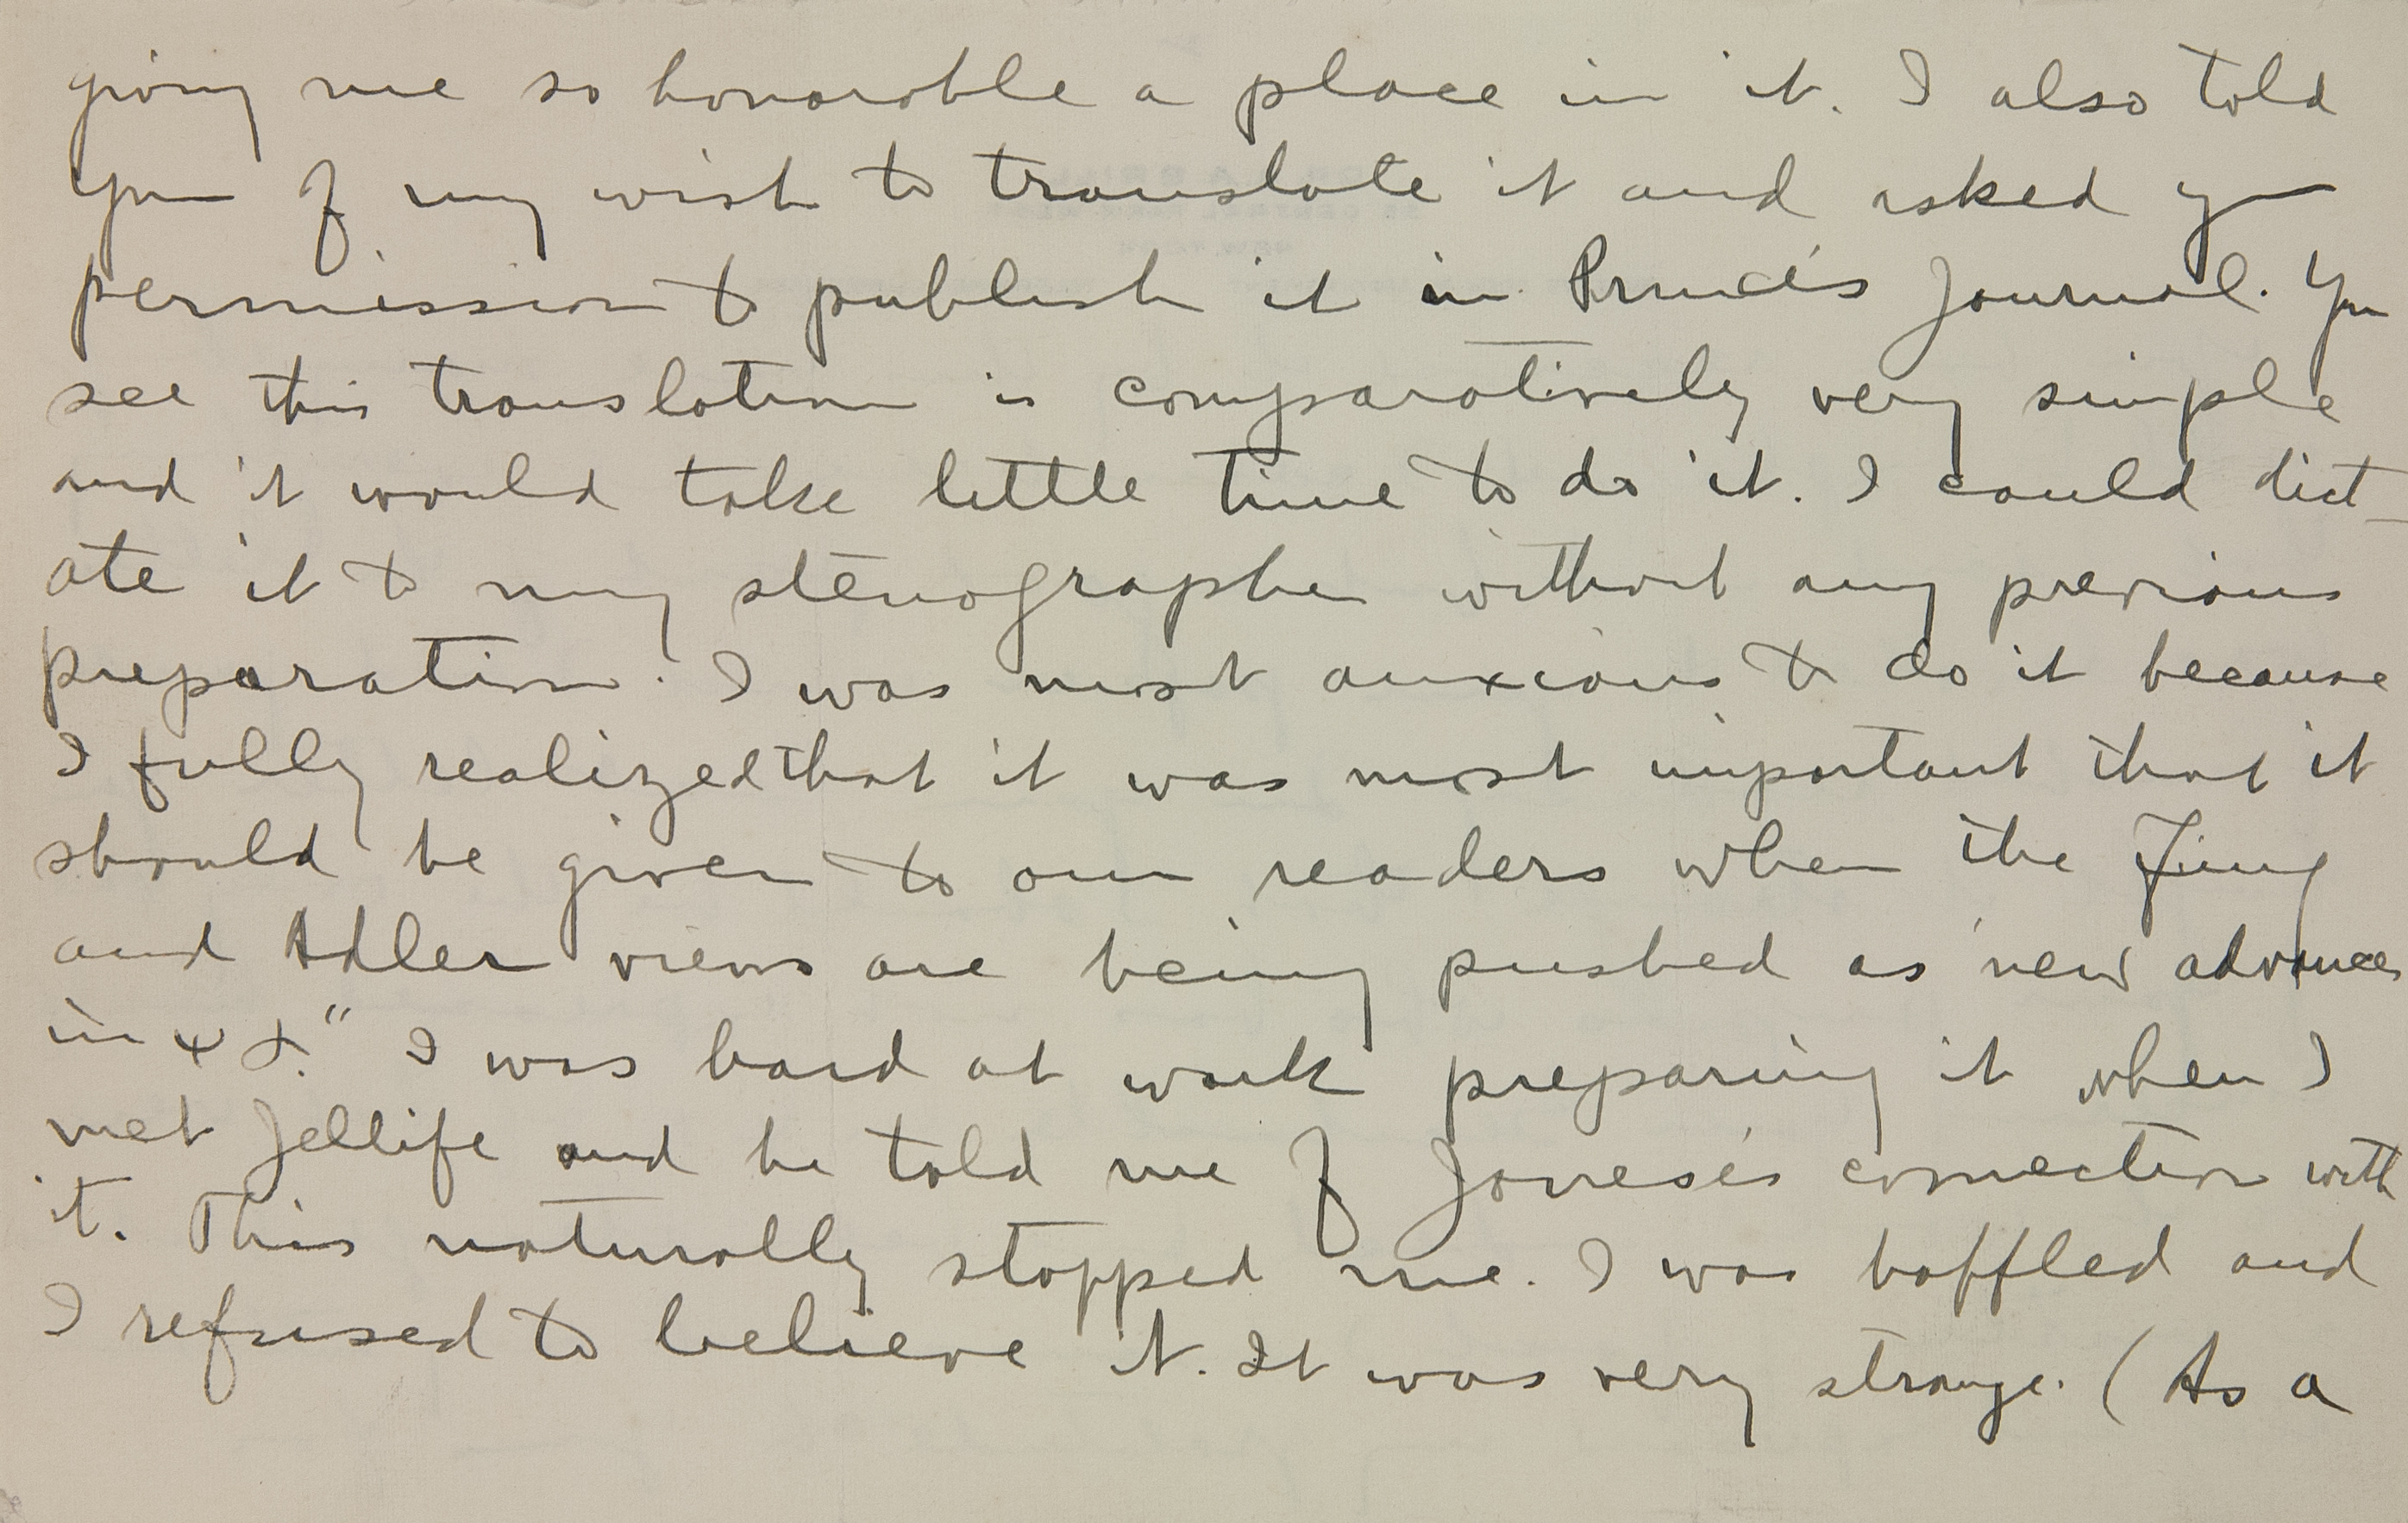 giving me so honorable a place in it. I also told
you of my wish to translate it and asked yr
permission to publish it in Prince's Journal. You
see this translation is comparatively very simple
and it would take little time to do it. I could dict-
ate it to my stenographer without any previous
preparation. I was most anxious to do it because
I fully realized that it was most important that it
should be given to our readers when the Jung
and Adler views are being pushed as "new advances
in ψα." I was hard at work preparing it when I
met Jellife and he told me of Joneses's connection with
it. This naturally stopped me. I was baffled and
I refused to believe it. It was very strange. (As a